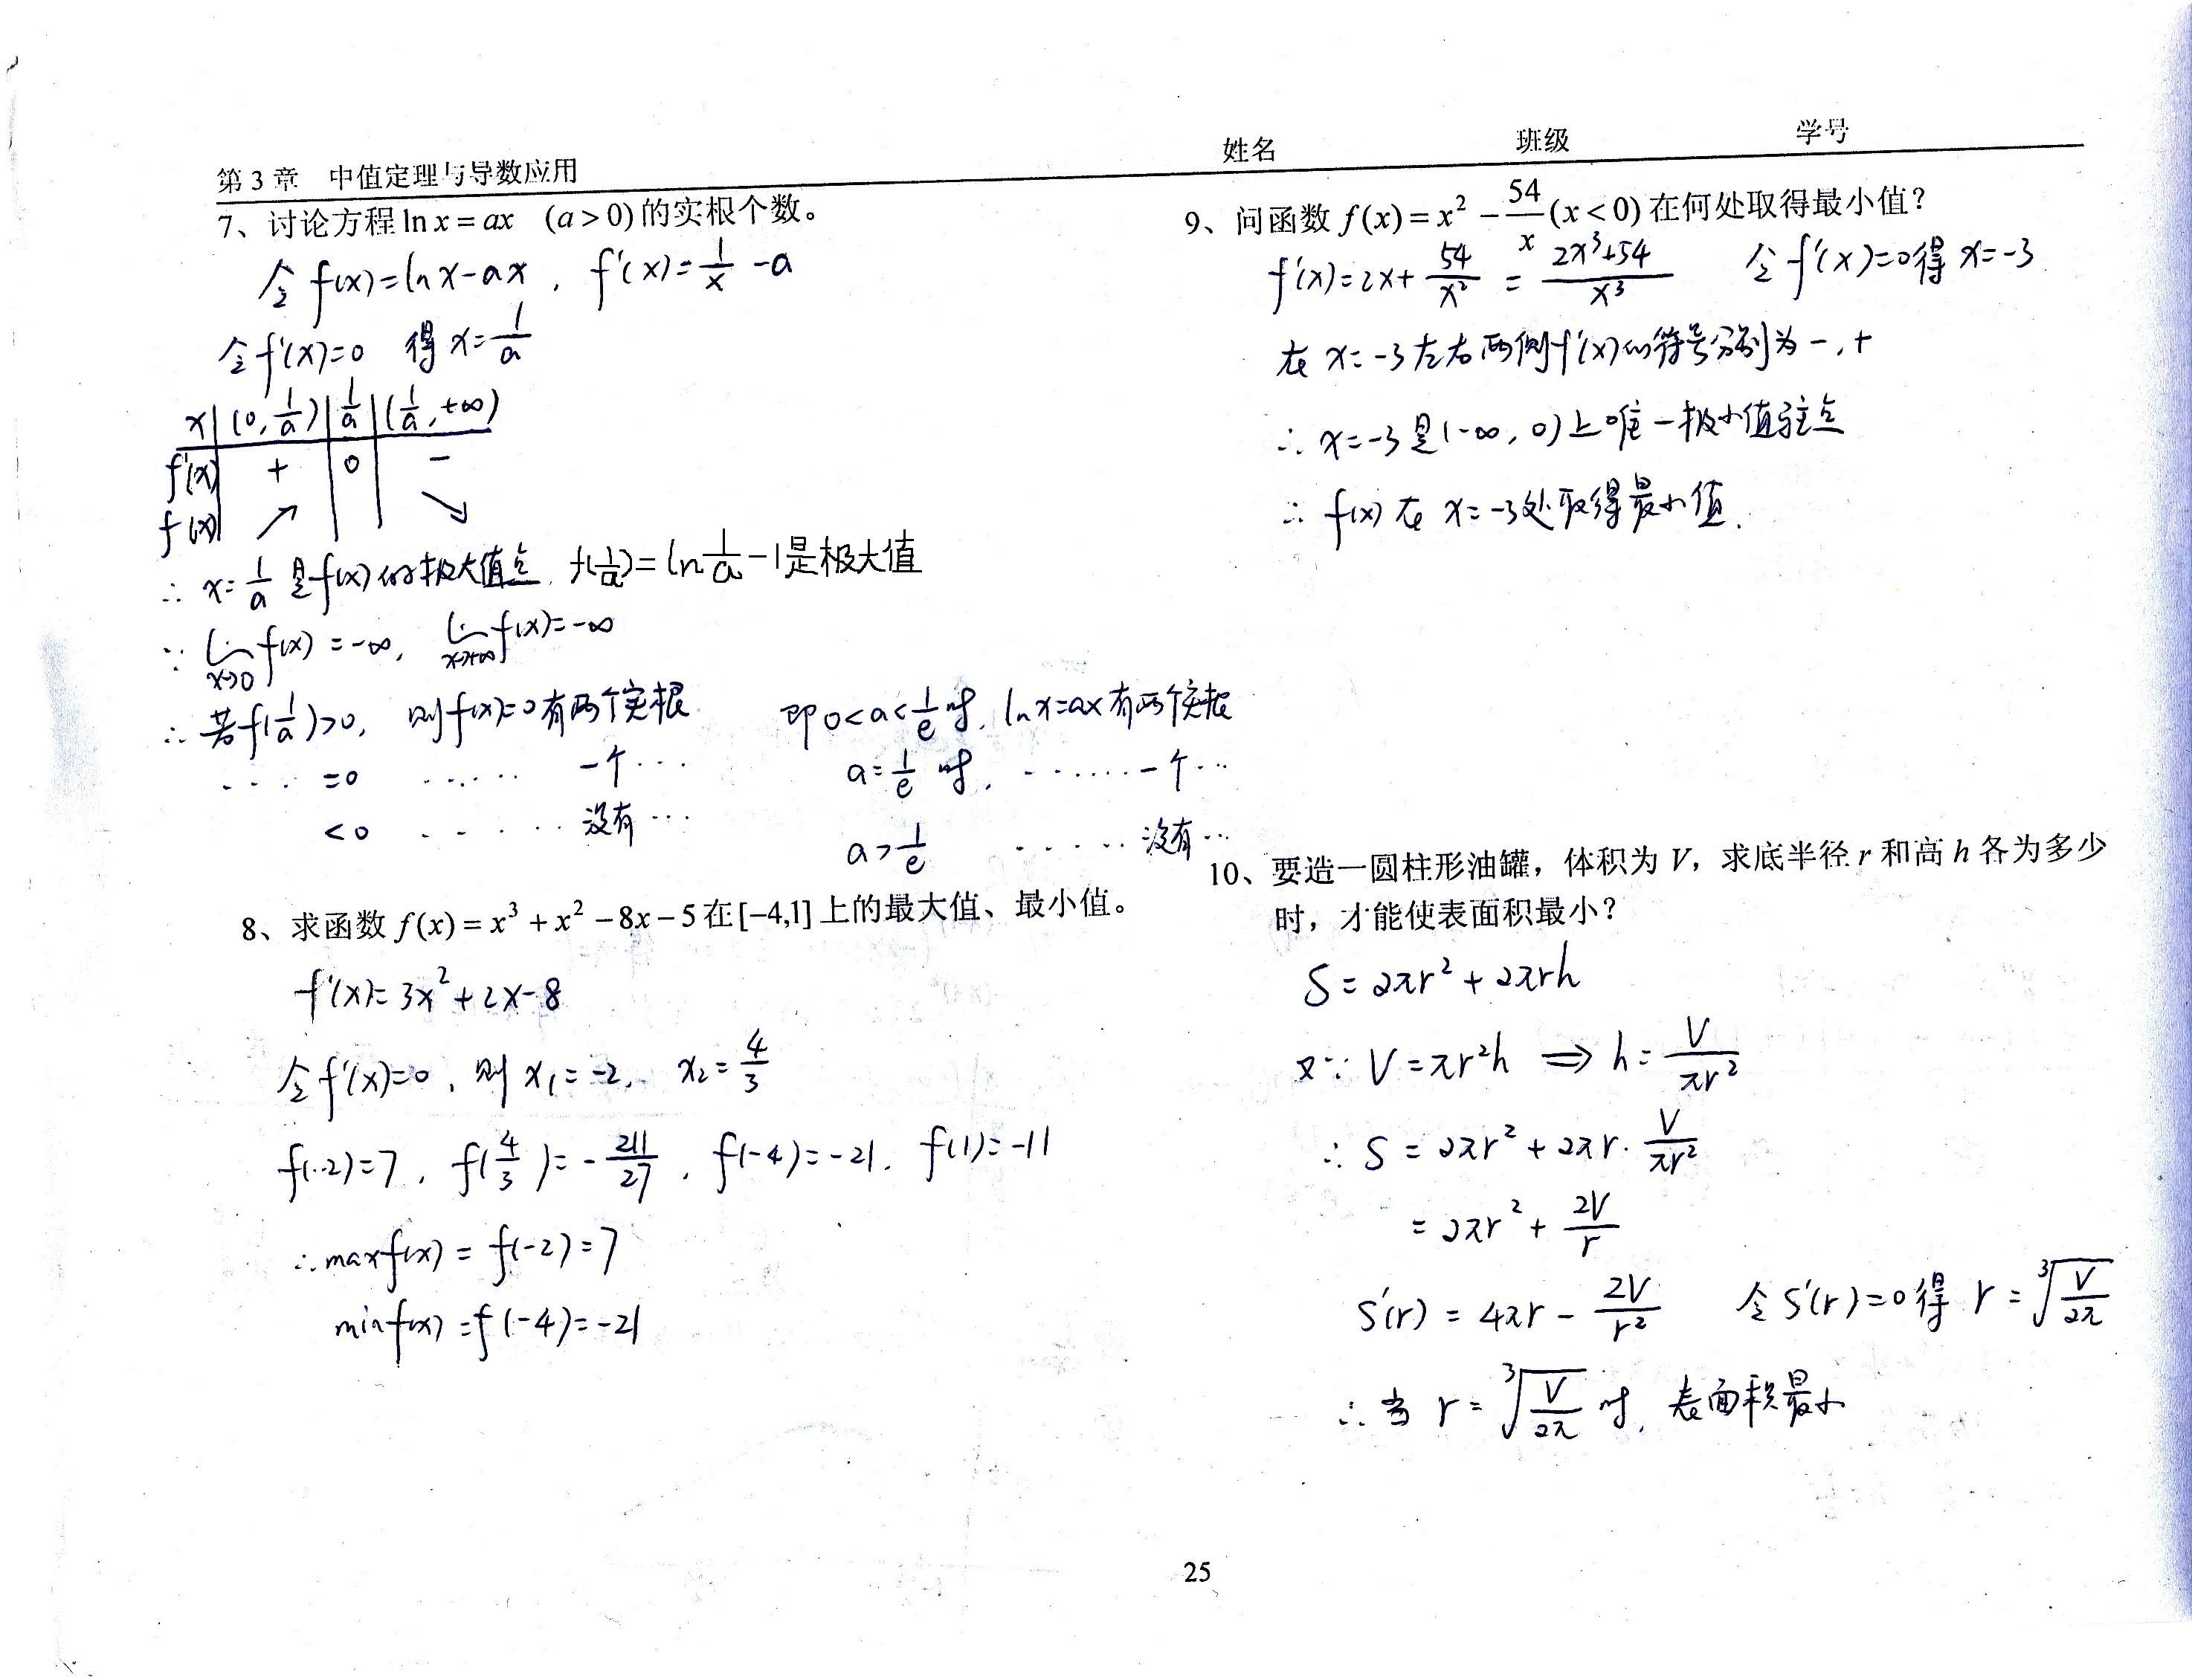 第 3 章 中值定理与导数应用 姓名 班级 学号
7、讨论方程 ln x = ax (a > 0) 的实根个数。
令 f(x) = ln x - ax , f'(x) = 1/x - a
令 f'(x)=0 得 x = 1/a
x | (0, 1/a) | 1/a | (1/a, +∞)
f'(x) | + | 0 | -
f(x) | ↗ | | ↘
∴ x = 1/a 是 f(x) 的极大值点. f(1/a) = ln 1/a - 1 是极大值
∵ lim x→0 f(x) = -∞, lim x→+∞ f(x) = -∞
∴ 若 f(1/a) > 0, 则 f(x)=0 有两个实根 即 0 < a < 1/e 时. ln x = ax 有两个实根
···· = 0 ····· 一个 ··· a = 1/e 时. ······ 一个 ···
< 0 ······ 没有 ··· a > 1/e ····· 没有 ···
8、求函数 f(x) = x³ + x² - 8x - 5 在 [-4,1] 上的最大值、最小值。
f'(x) = 3x² + 2x - 8
令 f'(x)=0 , 则 x₁ = -2, x₂ = 4/3
f(-2) = 7 , f(4/3) = - 211/27 , f(-4) = -21 . f(1) = -11
∴ max f(x) = f(-2) = 7
min f(x) = f(-4) = -21
9、问函数 f(x) = x² - 54/x (x < 0) 在何处取得最小值？
f'(x) = 2x + 54/x² = 2x³+54/x³ 令 f'(x)=0 得 x = -3
在 x = -3 左右两侧 f'(x) 的符号分别为 - , +
∴ x = -3 是 (-∞, 0) 上唯一极小值驻点
∴ f(x) 在 x = -3 处取得最小值.
10、要造一圆柱形油罐，体积为 V，求底半径 r 和高 h 各为多少
时，才能使表面积最小？
S = 2πr² + 2πrh
又∵ V = πr²h ⟹ h = V/πr²
∴ S = 2πr² + 2πr · V/πr²
= 2πr² + 2V/r
S'(r) = 4πr - 2V/r² 令 S'(r) = 0 得 r = ³√(V/2π)
∴ 当 r = ³√(V/2π) 时, 表面积最小
25